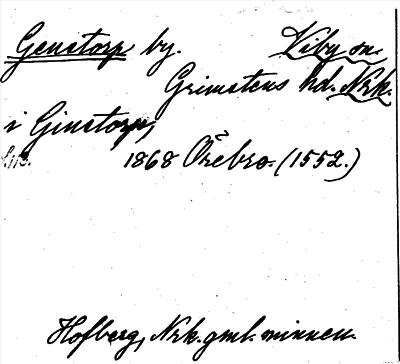 Genstorp by. Viby sn.
Grimstens hd. Nrk.
i Ginstorp,
1868 Örebro. (1552.)
Hofberg, Nrk. gml. minnen.